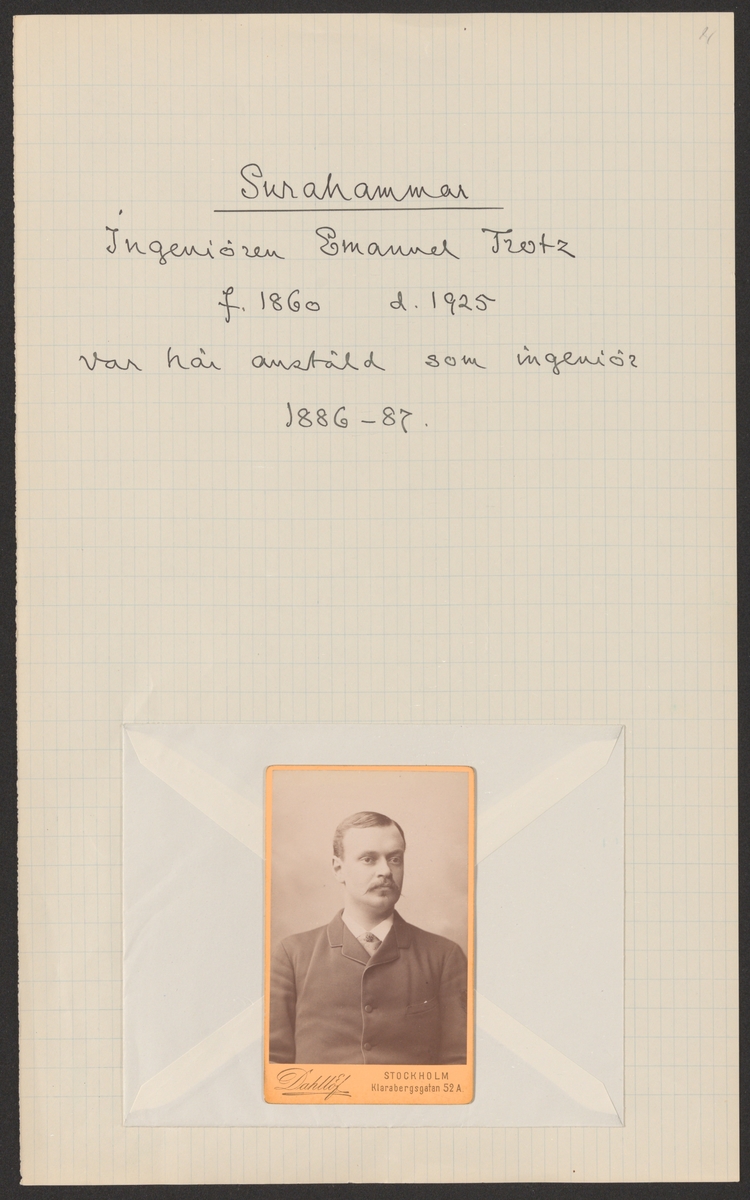 Surahammar
Ingeniören Emanuel Trotz
f. 1860 d. 1925
var här anstäld som ingeniör
1886-87.
Dahllöf
STOCKHOLM
Klarabergsgatan 52 A.